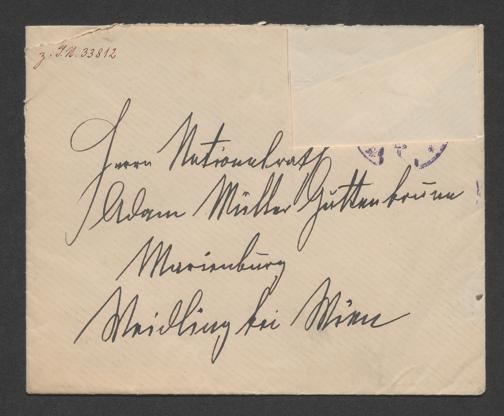 z. I.N. 33812
Herrn Nationalrath
Adam Müller Guttenbrunn
Marienburg
Weidling bei Wien